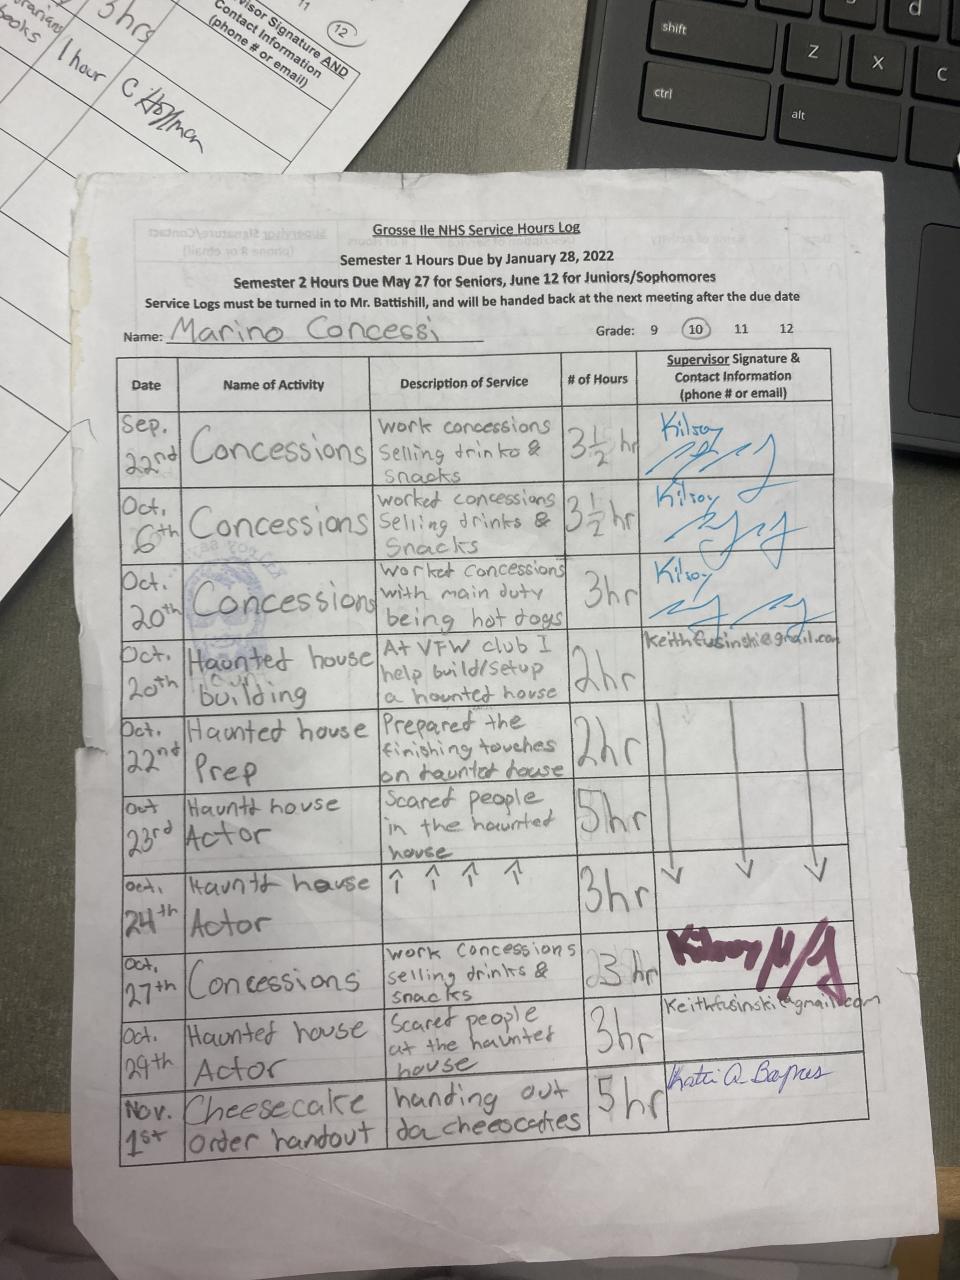 books
3hrs
1 hour
C Hoffman
11
12
Supervisor Signature AND
Contact Information
(phone # or email)
shift
Z
X
C
d
ctrl
alt
Grosse Ile NHS Service Hours Log
Semester 1 Hours Due by January 28, 2022
Semester 2 Hours Due May 27 for Seniors, June 12 for Juniors/Sophomores
Service Logs must be turned in to Mr. Battishill, and will be handed back at the next meeting after the due date
Name: Marino Concessi
Grade: 9 10 11 12
Date
Name of Activity
Description of Service
# of Hours
Supervisor Signature &
Contact Information
(phone # or email)
Sep.
22nd
Concessions
work concessions
selling drinks &
snacks
3 1/2 hr
Kilroy
Oct.
6th
Concessions
worked concessions
selling drinks &
snacks
3 1/2 hr
Kilroy
Oct.
20th
Concessions
worked concessions
with main duty
being hot dogs
3hr
Kilroy
Oct.
20th
Haunted house
building
At VFW club I
help build/setup
a haunted house
2hr
Keithfusinski@gmail.com
Oct.
22nd
Haunted house
Prep
Prepared the
finishing touches
on haunted house
2hr
Oct
23rd
Hauntd house
Actor
Scared people
in the haunted
house
5hr
Oct.
24th
Hauntd house
Actor
↑ ↑ ↑ ↑
3hr
Oct,
27th
Concessions
work concessions
selling drinks &
snacks
3 hr
Kilroy
Oct.
29th
Haunted house
Actor
Scared people
at the haunted
house
3hr
Keithfusinski@gmail.com
Nov.
1st
Cheesecake
order handout
handing out
da cheesecakes
5 hr
Katie A. Baynes